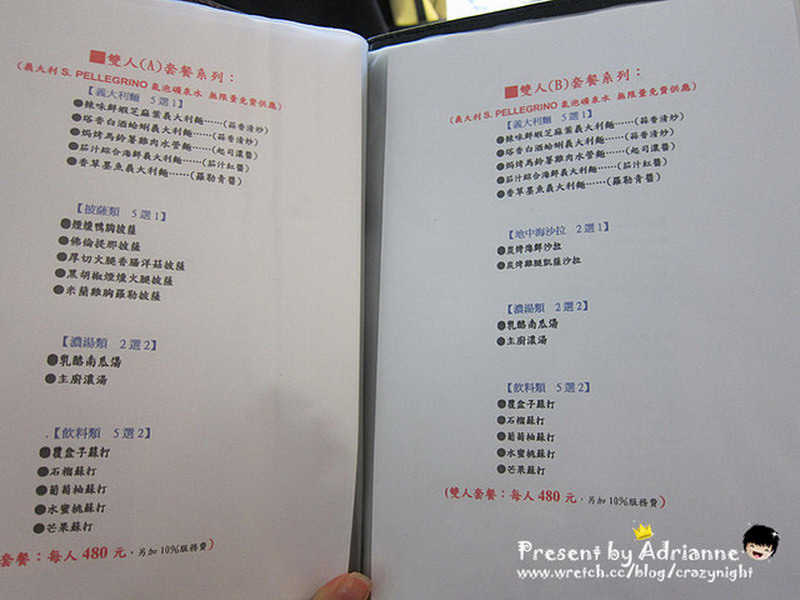 ■雙人(A)套餐系列：
(義大利 S. PELLEGRINO 氣泡礦泉水 無限量免費供應)
【義大利麵 5選1】
●辣味鮮蝦芝麻葉義大利麵……(蒜香清炒)
●塔香白酒蛤蜊義大利麵……(蒜香清炒)
●焗烤馬鈴薯雞肉水管麵……(起司濃醬)
●茄汁綜合海鮮義大利麵……(茄汁紅醬)
●香草墨魚義大利麵……(羅勒青醬)
【披薩類 5選1】
●煙燻鴨胸披薩
●佛倫提那披薩
●厚切火腿香腸洋菇披薩
●黑胡椒煙燻火腿披薩
●米蘭雞胸羅勒披薩
【濃湯類 2選2】
●乳酪南瓜湯
●主廚濃湯
.【飲料類 5選2】
●覆盆子蘇打
●石榴蘇打
●葡萄柚蘇打
●水蜜桃蘇打
●芒果蘇打
套餐：每人 480 元，另加 10%服務費)
■雙人(B)套餐系列：
(義大利 S. PELLEGRINO 氣泡礦泉水 無限量免費供應)
【義大利麵 5選1】
●辣味鮮蝦芝麻葉義大利麵……(蒜香清炒)
●塔香白酒蛤蜊義大利麵……(蒜香清炒)
●焗烤馬鈴薯雞肉水管麵……(起司濃醬)
●茄汁綜合海鮮義大利麵……(茄汁紅醬)
●香草墨魚義大利麵……(羅勒青醬)
【地中海沙拉 2選1】
●炭烤海鮮沙拉
●炭烤雞腿凱薩沙拉
【濃湯類 2選2】
●乳酪南瓜湯
●主廚濃湯
【飲料類 5選2】
●覆盆子蘇打
●石榴蘇打
●葡萄柚蘇打
●水蜜桃蘇打
●芒果蘇打
(雙人套餐：每人 480 元，另加 10%服務費)
Present by Adrianne
www.wretch.cc/blog/crazynight